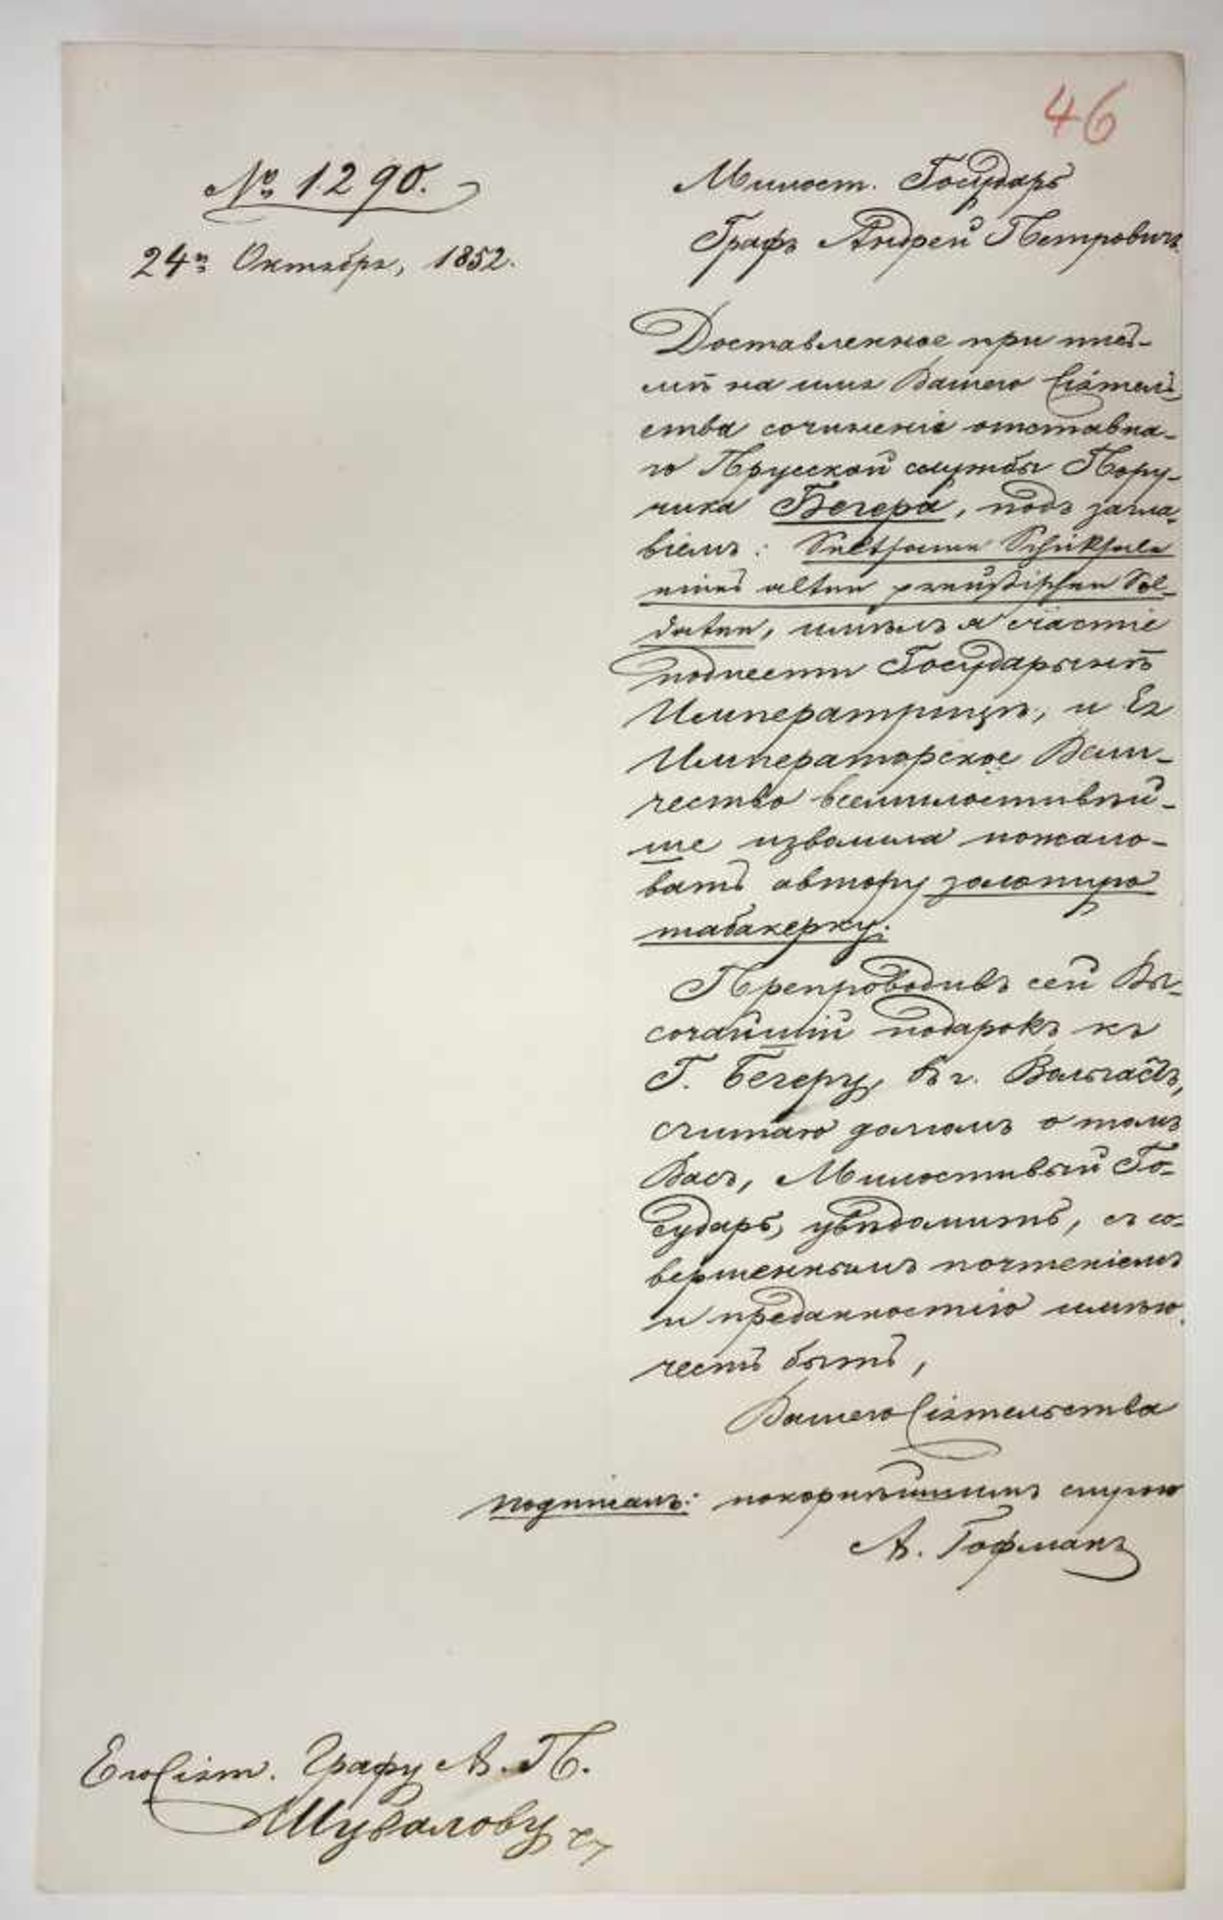 46
№ 1290.
24го Октября, 1852.
Милост. Государь
Графъ Андрей Петровичъ.
Доставленное при пись-
мѣ на имя Вашего Сіятель-
ства сочиненіе отставна-
го Прусской службы Пору-
чика Бегера, подъ загла-
віемъ: Seltsame Schicksale
eines alten preußischen Sol-
daten, имѣлъ я счастіе
поднести Государынѣ
Императрицѣ, и Ея
Императорское Вели-
чество всемилостивѣй-
ше изволила пожало-
вать автору золотую
табакерку.
Препроводивъ сей Вы-
сочайшій подарокъ къ
Г. Бегеру, въ г. Вольгастъ,
считаю долгомъ о томъ
Васъ, Милостивый Го-
сударь, увѣдомить, съ со-
вершеннымъ почтеніемъ
и преданностію имѣю
честь быть,
Вашего Сіятельства
подписалъ: покорнѣйшимъ слугою
А. Гофманъ
Его Сіят. Графу А. П.
Шувалову